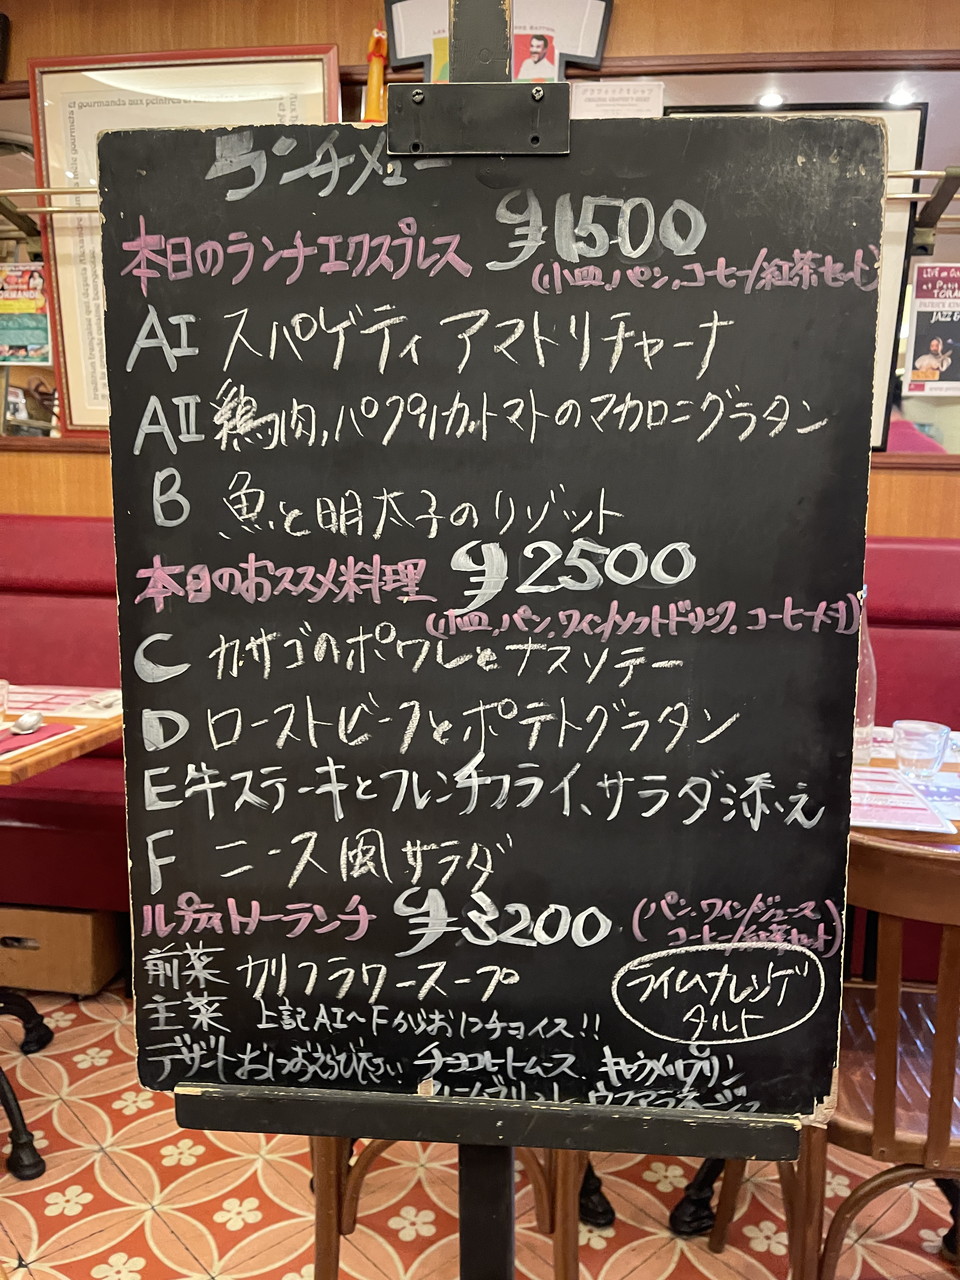 ランチメニュー
本日のランチエクスプレス ¥1500
(小皿,パン,コーヒー/紅茶セット)
AI スパゲティ アマトリチャーナ
AII 鶏肉,パプリカ,トマトのマカロニグラタン
B 魚と明太子のリゾット
本日のおススメ料理 ¥2500
(小皿,パン,ワイン/ソフトドリンク,コーヒー
C カサゴのポワレとナスソテー
D ローストビーフとポテトグラタン
E 牛ステーキとフレンチフライ、サラダ添え
F ニース風サラダ
ルプティトリーランチ ¥3200
(パン、ワイン/ジュース
コーヒー/紅茶セット)
前菜 カリフラワースープ
主菜 上記AI〜Fからお1つチョイス!!
ライムオレンジ
タルト
デザートお1つおえらび下さい チョコレートムース キャラメルプリン
クレームブリュレ ウフアラネージュ
LIVE
JAZZ &